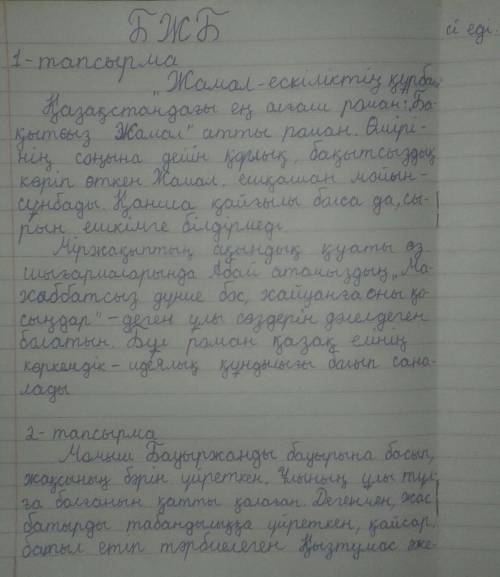 БЖБ
сі еді.
1-тапсырма
"Жамал-ескіліктің құрбаны
Қазақстандағы ең алғаш роман: "Ба-
қытсыз Жамал" атты роман. Өмірі-
нің соңына дейін қорлық, бақытсыздық
көріп өткен Жамал, ешқашан мойын-
сұнбады. Қанша қайғылы болса да, сы-
рын ешкімге білдірмеді.
Міржақыптың ақындық қуаты өз
шығармаларында Абай атамыздың "Ма-
хаббатсыз дүние бос, хайуанға оны қо-
сыңдар" - деген ұлы сөздерін дәлелдеген
болатын. Бұл роман қазақ елінің
көркемдік - идеялық құндылығы болып сана-
лады
2- тапсырма
Момыш Бауыржанды бауырына басып,
жақсының бәрін үйреткен. Ұлының ұлы тұл-
ға болғанын қатты қалаған. Дегенмен, жас
батырды табандылыққа үйреткен, қайсар,
батыл етіп тәрбиелеген Қызтумас әже-